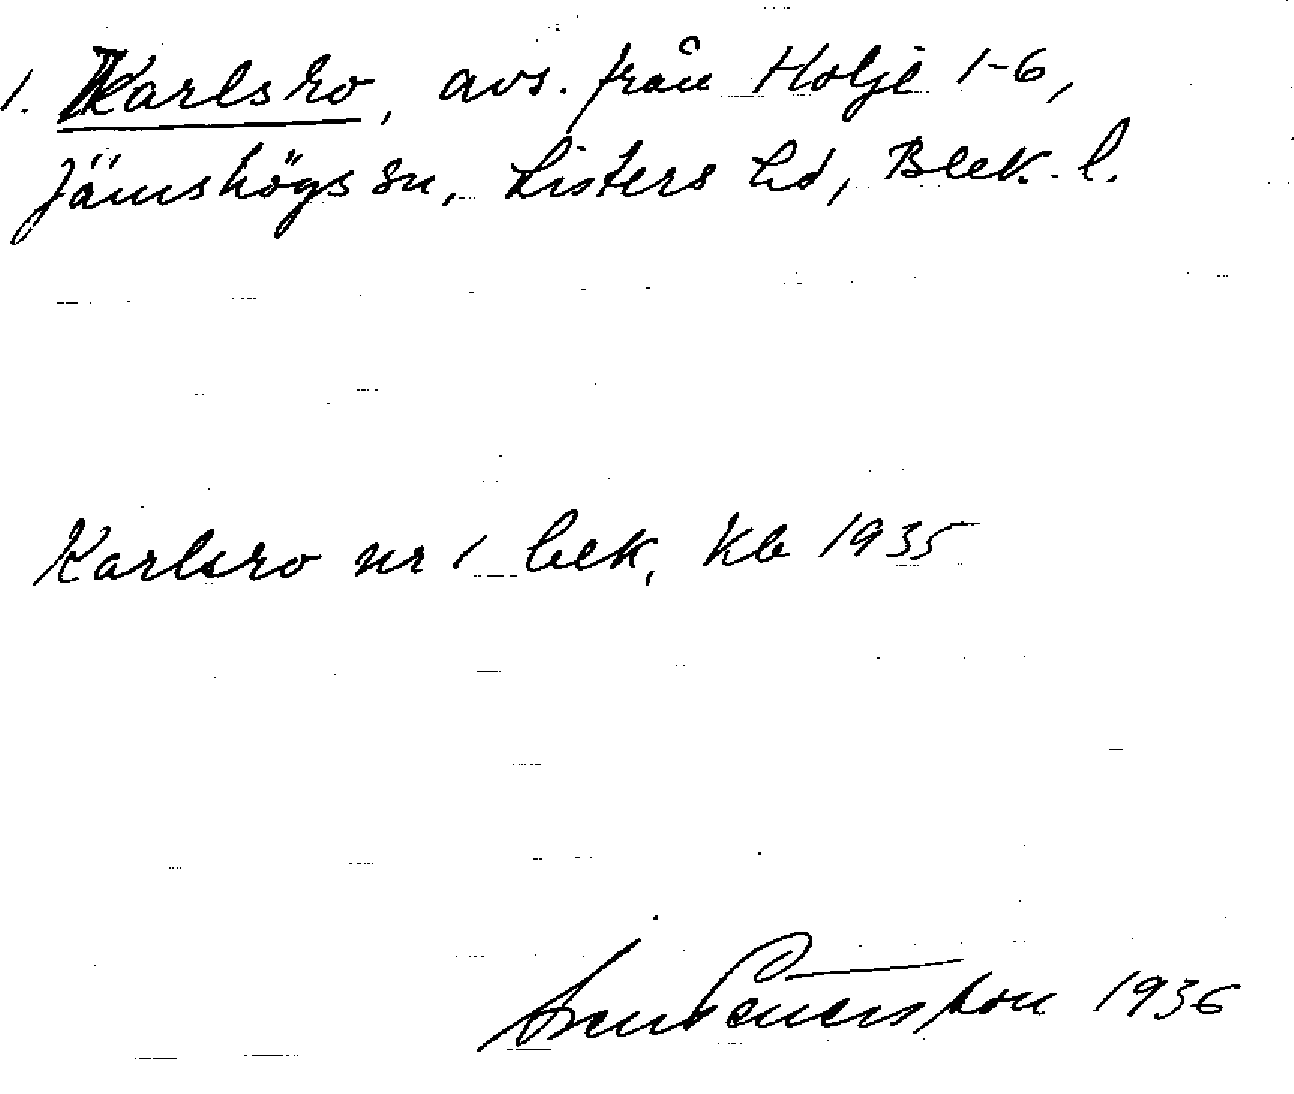 1. Karlsro, avs. från Holje 1-6,
Jämshögs sn, Listers hd, Blek. l.
Karlsro nr 1 bek, kb 1935
Sven 1936